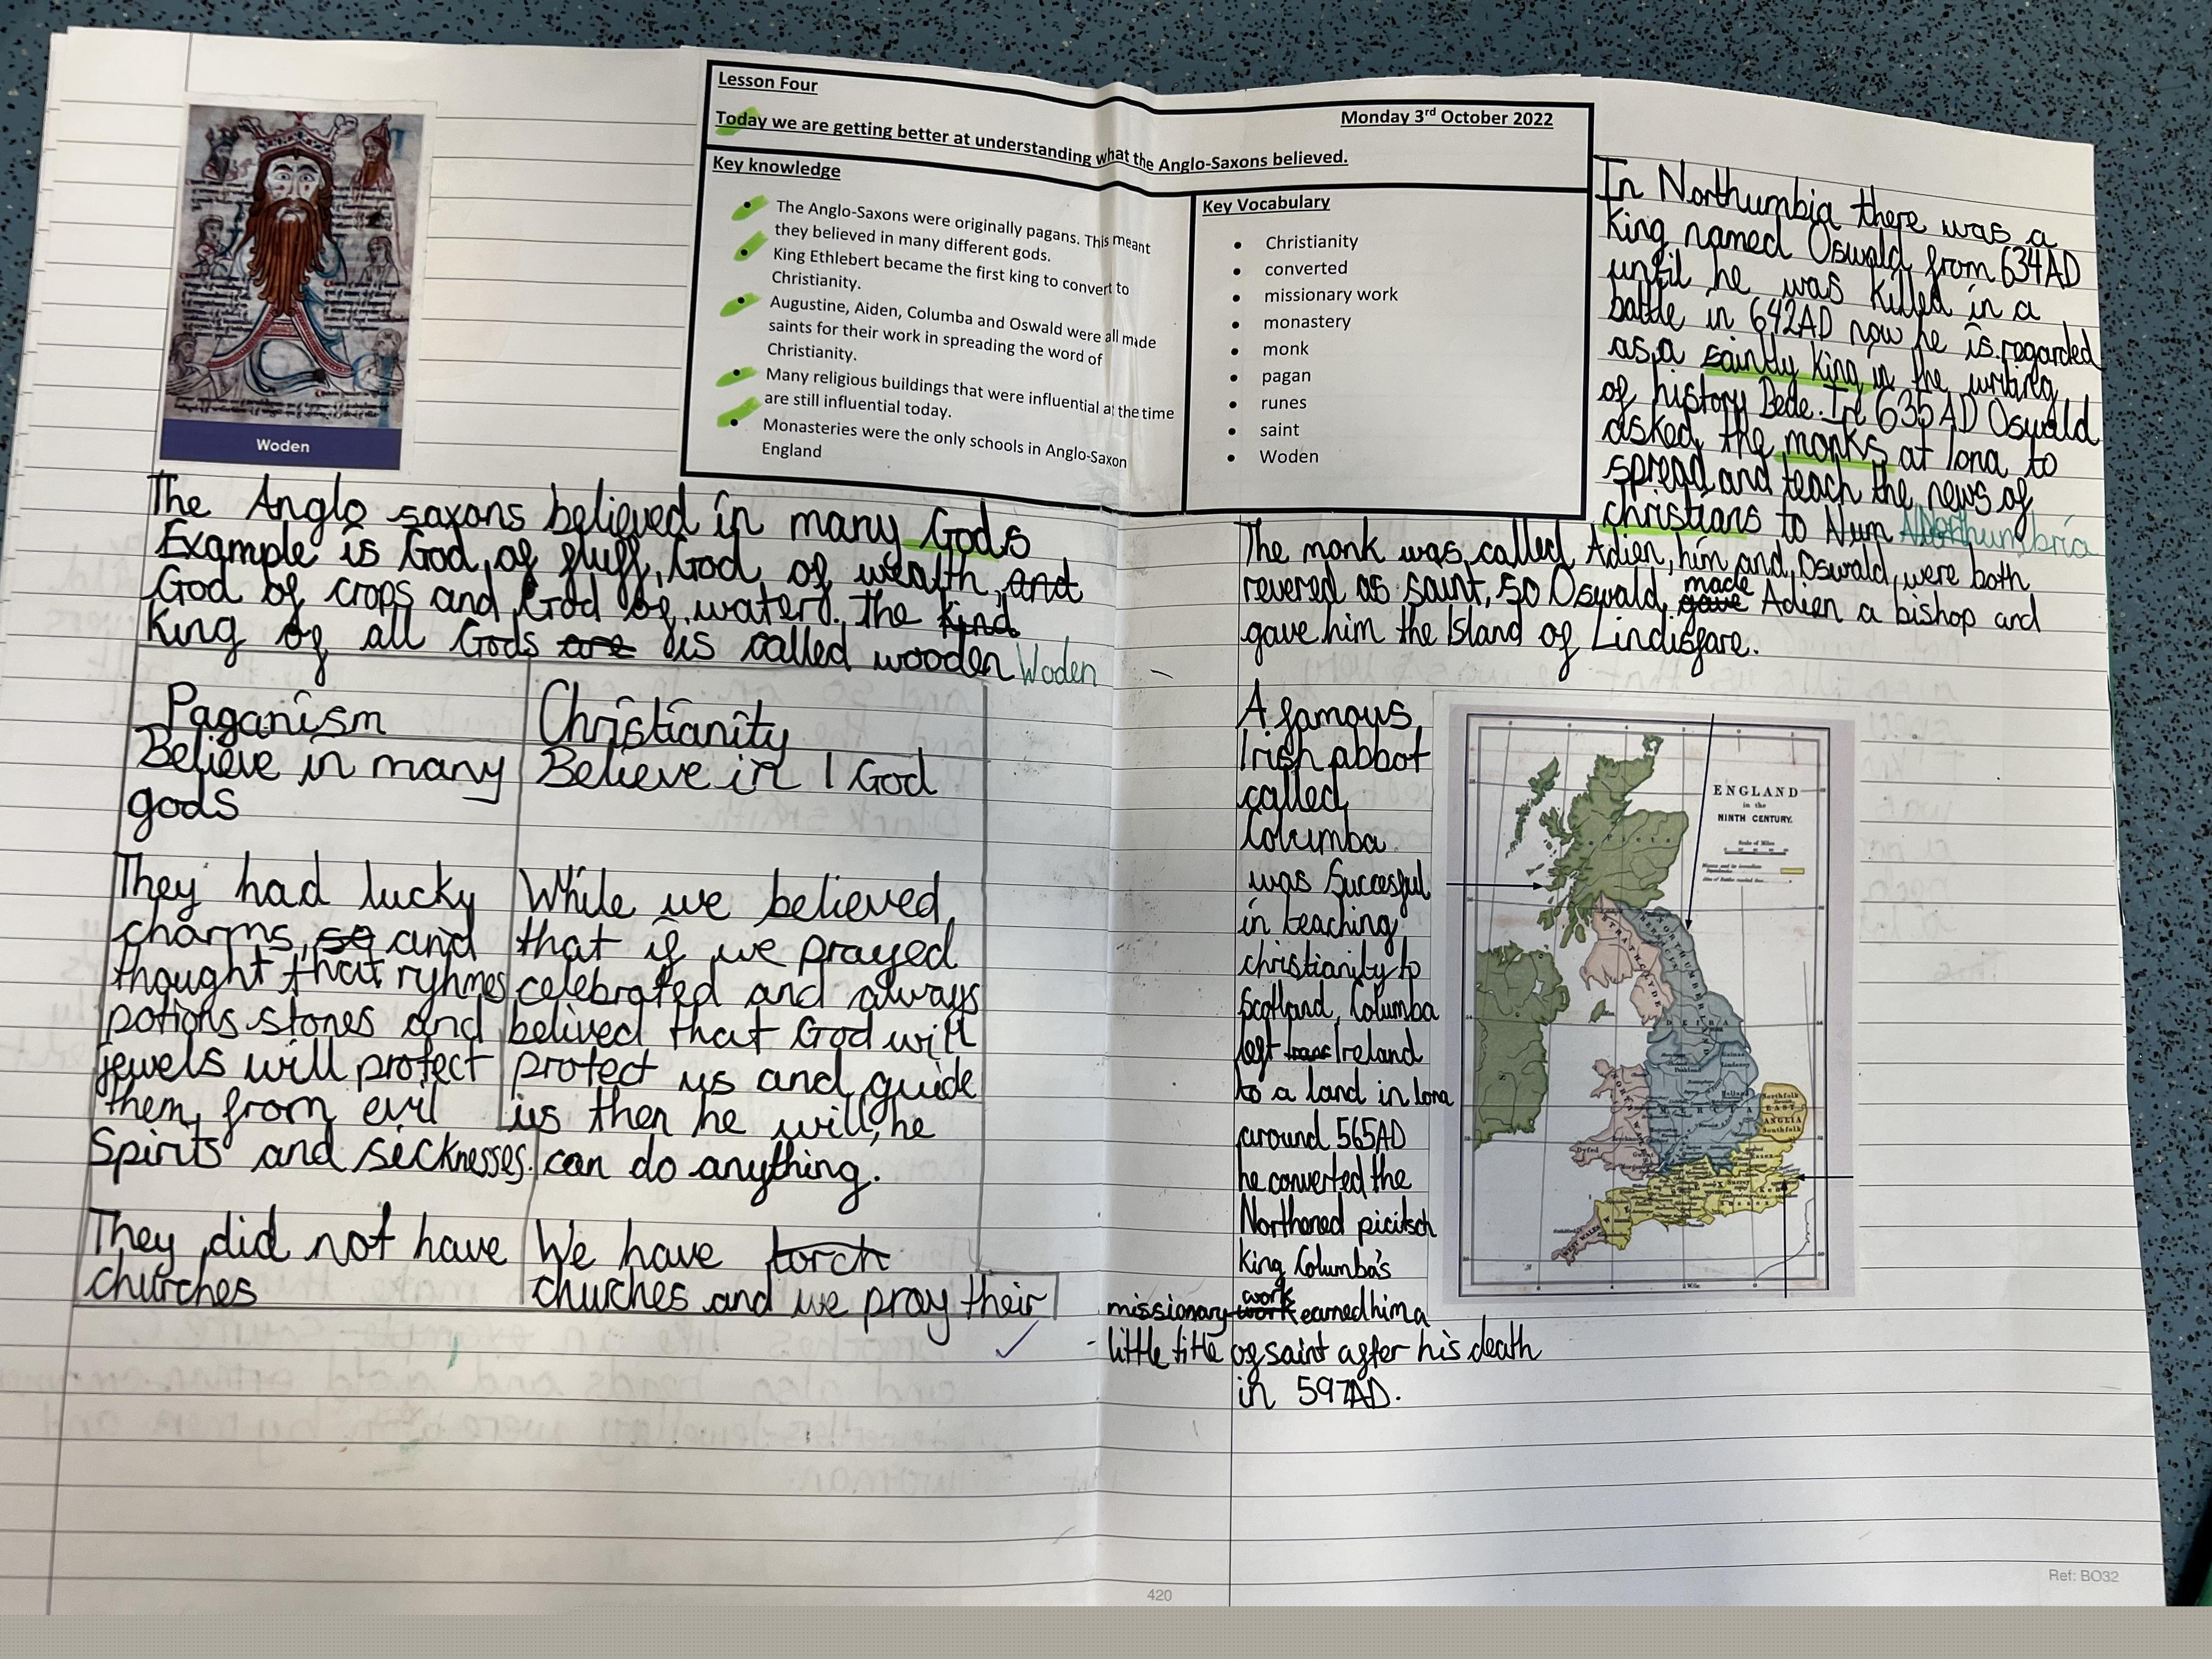 Woden
Lesson Four
Monday 3rd October 2022
Today we are getting better at understanding what the Anglo-Saxons believed.
Key knowledge
• The Anglo-Saxons were originally pagans. This meant
they believed in many different gods.
• King Ethlebert became the first king to convert to
Christianity.
• Augustine, Aiden, Columba and Oswald were all made
saints for their work in spreading the word of
Christianity.
• Many religious buildings that were influential at the time
are still influential today.
• Monasteries were the only schools in Anglo-Saxon
England
Key Vocabulary
• Christianity
• converted
• missionary work
• monastery
• monk
• pagan
• runes
• saint
• Woden
The Anglo saxons believed in many Gods
Example is God of fluff, God of wealth, and
God of crops and God of water. the kind
King of all Gods are is called wooden Woden
Paganism
Christianity
Believe in many
gods
Believe in 1 God
They had lucky
charms, so and
thought that ryhmes
potions stones and
jewels will protect
them from evil
Spirits and sicknesses.
While we believed
that if we prayed
celebrated and always
belived that God will
protect us and guide
us then he will, he
can do anything.
They did not have
churches
We have torch
churches and we pray their
In Northumbia there was a
King named Oswald from 634AD
until he was killed in a
battle in 642AD now he is regarded
as a saintly king in the writing
of history Bede. In 635AD Oswald
asked the monks at Iona to
spread and teach the news of
christians to Num Northumbria
The monk was called Adien, him and Oswald were both
revered as saint, so Oswald gave made Adien a bishop and
gave him the Island of Lindisfare.
A famous
Irish abbot
called
Columba
was Succesful
in teaching
christianity to
Scotland, Columba
left Ireland
to a land in Iona
around 565AD
he converted the
Northoned picitsch
King Columba's
missionary work work earned him a
little title of saint after his death
in 597AD.
ENGLAND
in the
NINTH CENTURY.
Scale of Miles
PICTS
STRATHCLYDE
NORTHUMBERLAND
DEIRA
NORTH WALES
MERCIA
Northfolk
EAST
ANGLIA
Southfolk
Essex
WEST WALES
420
Ref: BO32